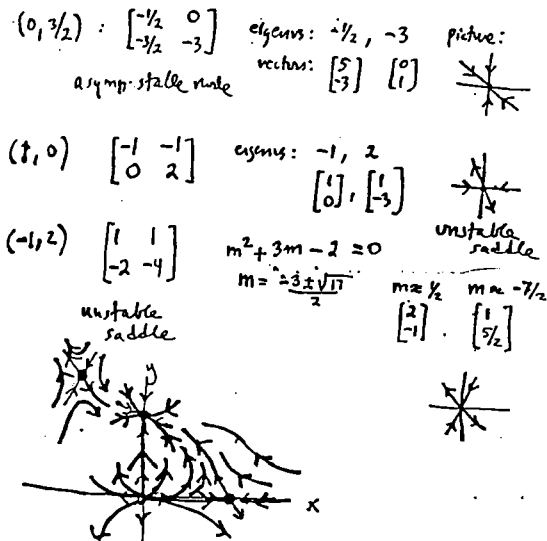 (0, 3/2) : [-1/2 0; -3/2 -3] eigenvs: -1/2, -3 picture:
vectors: [5; -3] [0; 1]
asymp. stable node
(1, 0) [-1 -1; 0 2] eigenvs: -1, 2
[1; 0], [1; -3]
unstable saddle
(-1, 2) [1 1; -2 -4] m² + 3m - 2 = 0
m = (-3 ± √17)/2
m ≈ 1/2 m ≈ -7/2
[2; -1] . [1; 5/2]
unstable saddle
y
x